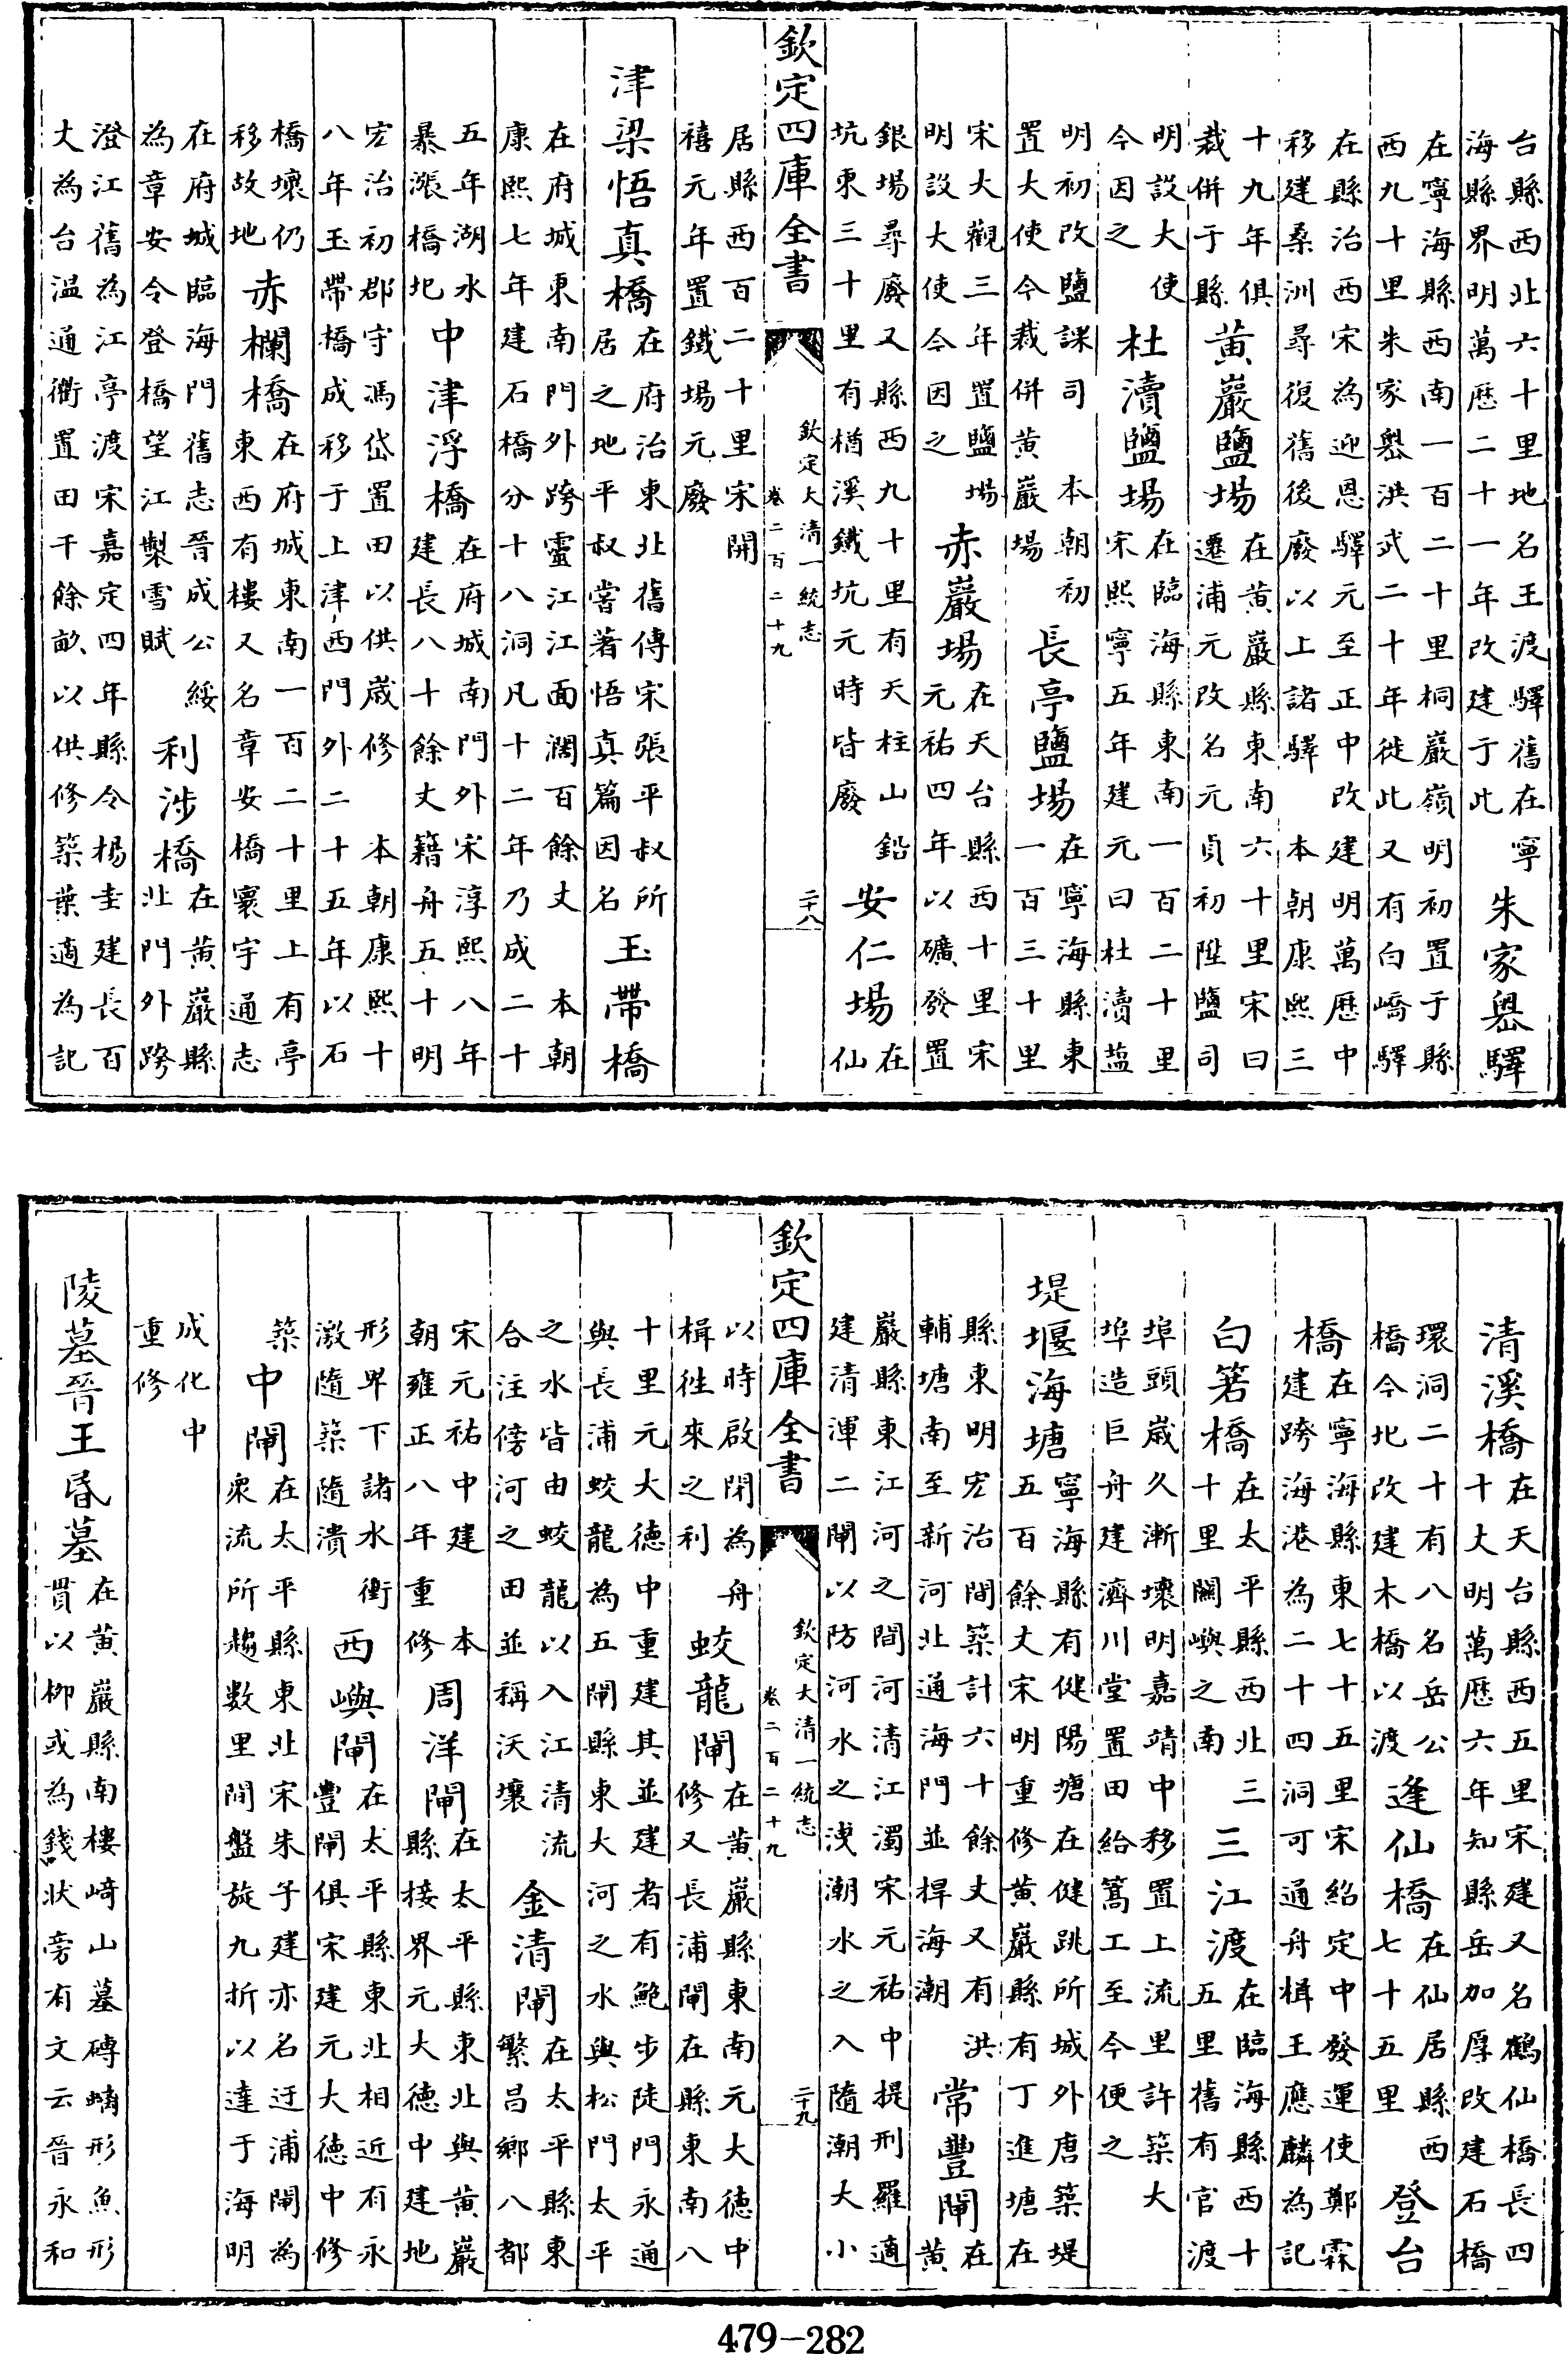 台縣西北六十里地名王渡驛舊在寧
海縣界明萬歷二十一年改建于此
朱家嶴驛
在寧海縣西南一百二十里桐巖嶺明初置于縣
西九十里朱家嶴洪武二十年徙此又有白嶠驛
在縣治西宋為迎恩驛元至正中改建明萬歷中
移建桑洲尋復舊後廢以上諸驛 本朝康熙三
十九年俱
裁併于縣
黃巖鹽場
在黃巖縣東南六十里宋曰
遷浦元改名元貞初陞鹽司
明設大使
今因之
杜瀆鹽場
在臨海縣東南一百二十里
宋熙寧五年建元曰杜瀆盐
明初改鹽課司 本朝初
置大使今裁併黃巖場
長亭鹽場
在寧海縣東
一百三十里
宋大觀三年置鹽場
明設大使今因之
赤巖場
在天台縣西十里宋
元祐四年以礦發置
銀場尋廢又縣西九十里有天柱山鉛
坑東三十里有楢溪鐵坑元時皆廢
安仁場
在
仙
欽定四庫全書
欽定大清一統志
卷二百二十九
二十八
居縣西百二十里宋開
禧元年置鐵場元廢
津梁悟真橋
在府治東北舊傳宋張平叔所
居之地平叔嘗著悟真篇因名
玉帶橋
在府城東南門外跨靈江江面濶百餘丈 本朝
康熙七年建石橋分十八洞凡十二年乃成二十
五年湖水
暴漲橋圮
中津浮橋
在府城南門外宋淳熙八年
建長八十餘丈籍舟五十明
宏治初郡守馮岱置田以供歲修 本朝康熙十
八年玉帶橋成移于上津西門外二十五年以石
橋壞仍
移故地
赤欄橋
在府城東南一百二十里上有亭
東西有樓又名章安橋寰宇通志
在府城臨海門舊志晉成公綏
為章安令登橋望江製雪賦
利涉橋
在黃巖縣
北門外跨
澄江舊為江亭渡宋嘉定四年縣令楊圭建長百
丈為台溫通衢置田千餘畝以供修築葉適為記
清溪橋
在天台縣西五里宋建又名鶴仙橋長四
十丈明萬歷六年知縣岳加厚改建石橋
環洞二十有八名岳公
橋今地改建木橋以渡
逢仙橋
在仙居縣西
七十五里
登台
橋
在寧海縣東七十五里宋紹定中發運使鄭霖
建跨海港為二十四洞可通舟楫王應麟為記
白箬橋
在太平縣西北三
十里關嶼之南
三江渡
在臨海縣西十
五里舊有官渡
埠頭歲久漸壞明嘉靖中移置上流里許築大
埠造巨舟建濟川堂置田給篙工至今便之
堤堰海塘
寧海縣有健陽塘在健跳所城外唐築堤
五百餘丈宋明重修黃巖縣有丁進塘在
縣東明宏治間築計六十餘丈又有洪
輔塘南至新河北通海門並捍海潮
常豐閘
在
黃
巖縣東江河之間河清江濁宋元祐中提刑羅適
建清渾二閘以防河水之洩潮水之入隨潮大小
欽定四庫全書
欽定大清一統志
卷二百二十九
二十九
以時啟閉為舟
楫徃來之利
蛟龍閘
在黃巖縣東南元大德中
修又長浦閘在縣東南八
十里元大德中重建其並建者有鮑步陡門永通
與長浦蛟龍為五閘縣東大河之水與松門太平
之水皆由蛟龍以入江清流
合注傍河之田並稱沃壤
金清閘
在太平縣東
繁昌鄉八都
宋元祐中建 本
朝雍正八年重修
周洋閘
在太平縣東北與黃巖
縣接界元大德中建地
形卑下諸水衝
激隨築隨潰
西嶼閘
在太平縣東北相近有永
豐閘俱宋建元大德中修
築
中閘
在太平縣東北宋朱子建亦名迂浦閘為
衆流所趨数里間盤旋九折以達于海明
成化中
重修
陵墓晉王昏墓
在黃巖縣南樓﨑山墓磚螭形魚形
貫以柳或為錢状旁有文云晉永和
479-282